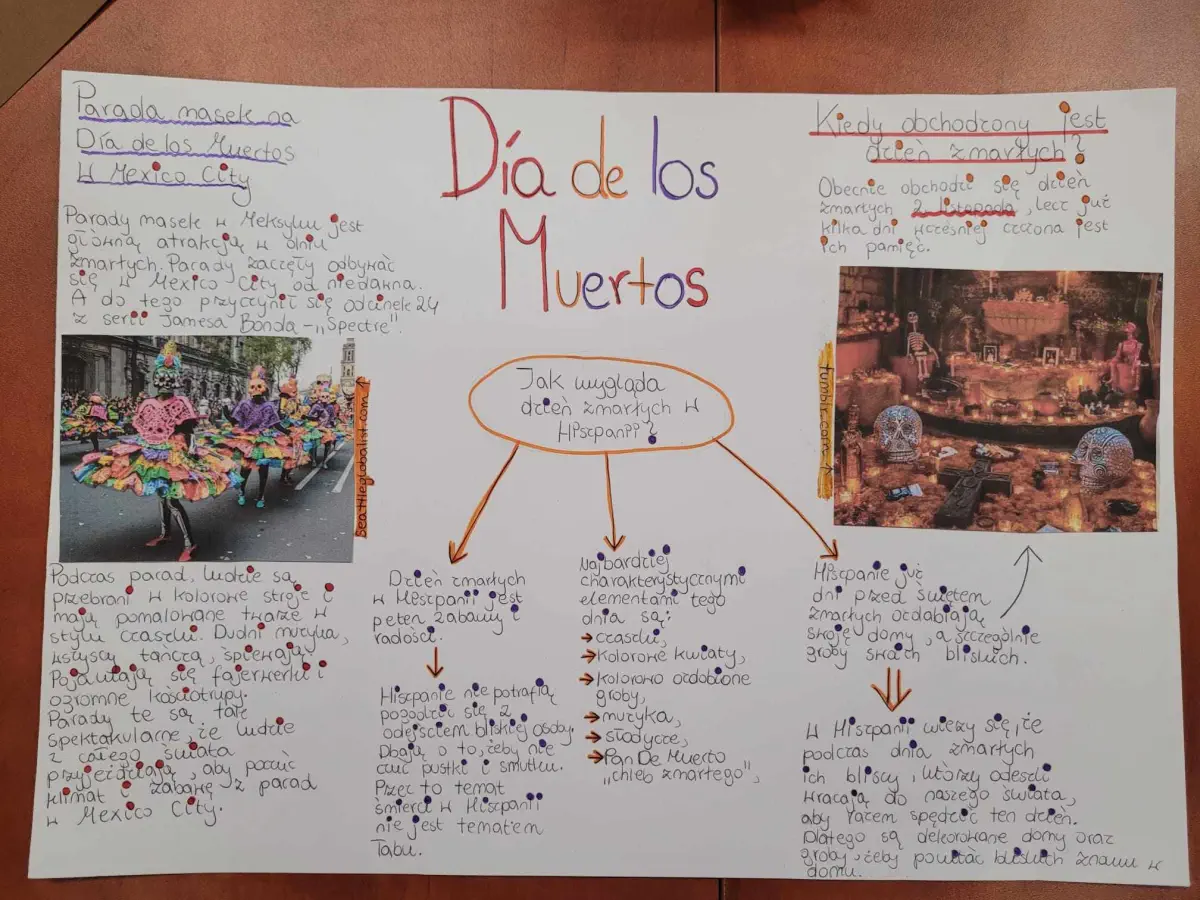 Parada masek na
Día de los Muertos
w Mexico City
Parady masek w Meksyku jest
główną atrakcją w dniu
zmarłych. Parady zaczęły odbywać
się w Mexico City od niedawna.
A do tego przyczynił się odcinek 24
z serii Jamesa Bonda - „Spectre".
seattleglobalist.com
Podczas parad, ludzie są
przebrani w kolorowe stroje i
mają pomalowane twarze w
stylu czaszki. Dudni muzyka,
wszyscy tańczą, śpiewają
Pojawiają się fajerwerki i
ogromne kościotrupy.
Parady te są tak
spektakularne, że ludzie
z całego świata
przyjeżdżają, aby poczuć
klimat i zabawę z parad
w Mexico City.
Día de los
Muertos
Jak wygląda
dzień zmarłych w
Hiszpanii?
Dzień zmarłych
w Hiszpanii jest
pełen zabawy i
radości.
Hiszpanie nie potrafią
pogodzić się z
odejściem bliskiej osoby.
Dbają o to, żeby nie
czuć pustki i smutku.
Przez to temat
śmierci w Hiszpanii
nie jest tematem
Tabu.
Najbardziej
charakterystycznymi
elementami tego
dnia są:
→ czaszki,
→ kolorowe kwiaty,
→ kolorowo ozdobione
groby,
→ muzyka,
→ słodycze,
→ Pan De Muerto
„chleb zmarłego",
Kiedy obchodzony jest
dzień zmarłych?
Obecnie obchodzi się dzień
zmarłych 2 listopada, lecz już
kilka dni wcześniej czczona jest
ich pamięć.
tumblr.com
Hiszpanie już
dni przed świętem
zmarłych ozdabiają
swoje domy, a szczególnie
groby swoich bliskich.
W Hiszpanii wierzy się, że
podczas dnia zmarłych
ich bliscy, którzy odeszli
wracają do naszego świata,
aby razem spędzić ten dzień.
Dlatego są dekorowane domy oraz
groby, żeby powitać bliskich znowu w
domu.